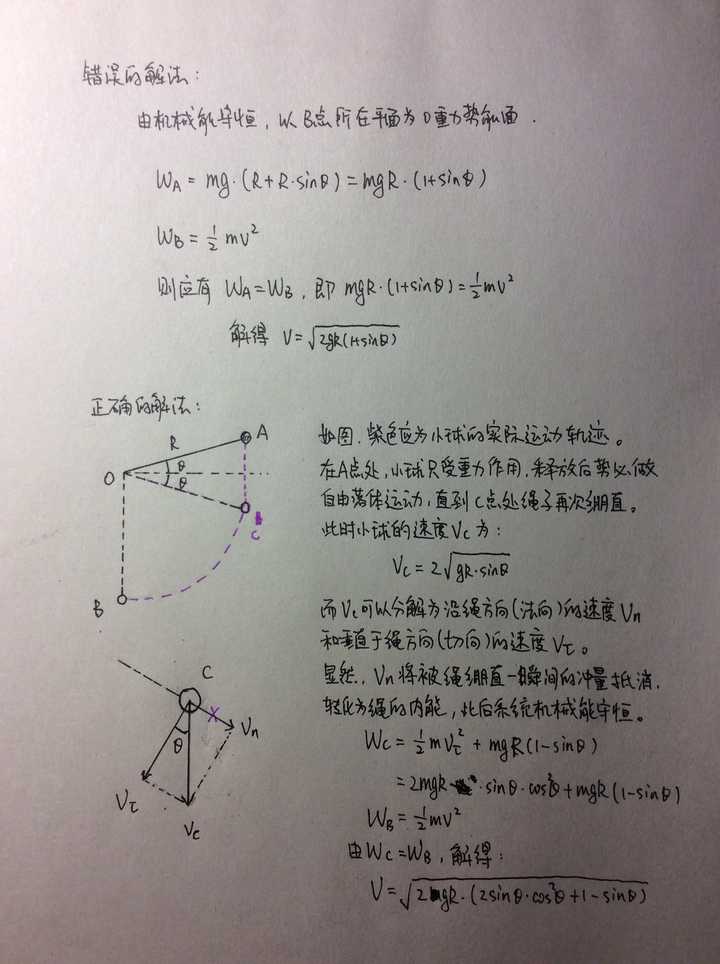 错误的解法：
由机械能守恒，以B点所在平面为0重力势能面.
W_A = mg·(R+R·sinθ) = mgR·(1+sinθ)
W_B = ½mv²
则应有 W_A=W_B，即 mgR·(1+sinθ)=½mv²
解得 V=√2gR(1+sinθ)
正确的解法：
R
A
O
θ
θ
C
B
如图，紫色应为小球的实际运动轨迹。
在A点处，小球只受重力作用，释放后势必做
自由落体运动，直到C点处绳子再次绷直。
此时小球的速度Vc为：
Vc = 2√gR·sinθ
而Vc可以分解为沿绳方向(法向)的速度Vn
和垂直于绳方向(切向)的速度Vτ。
显然，Vn将被绳绷直一瞬间的冲量抵消，
转化为绳的内能，此后系统机械能守恒。
Wc = ½mVτ² + mgR(1-sinθ)
=2mgR·sinθ·cos²θ+mgR(1-sinθ)
W_B=½mv²
由Wc=W_B，解得：
V=√2gR·(2sinθ·cos²θ+1-sinθ)
C
X
Vn
θ
Vτ
Vc